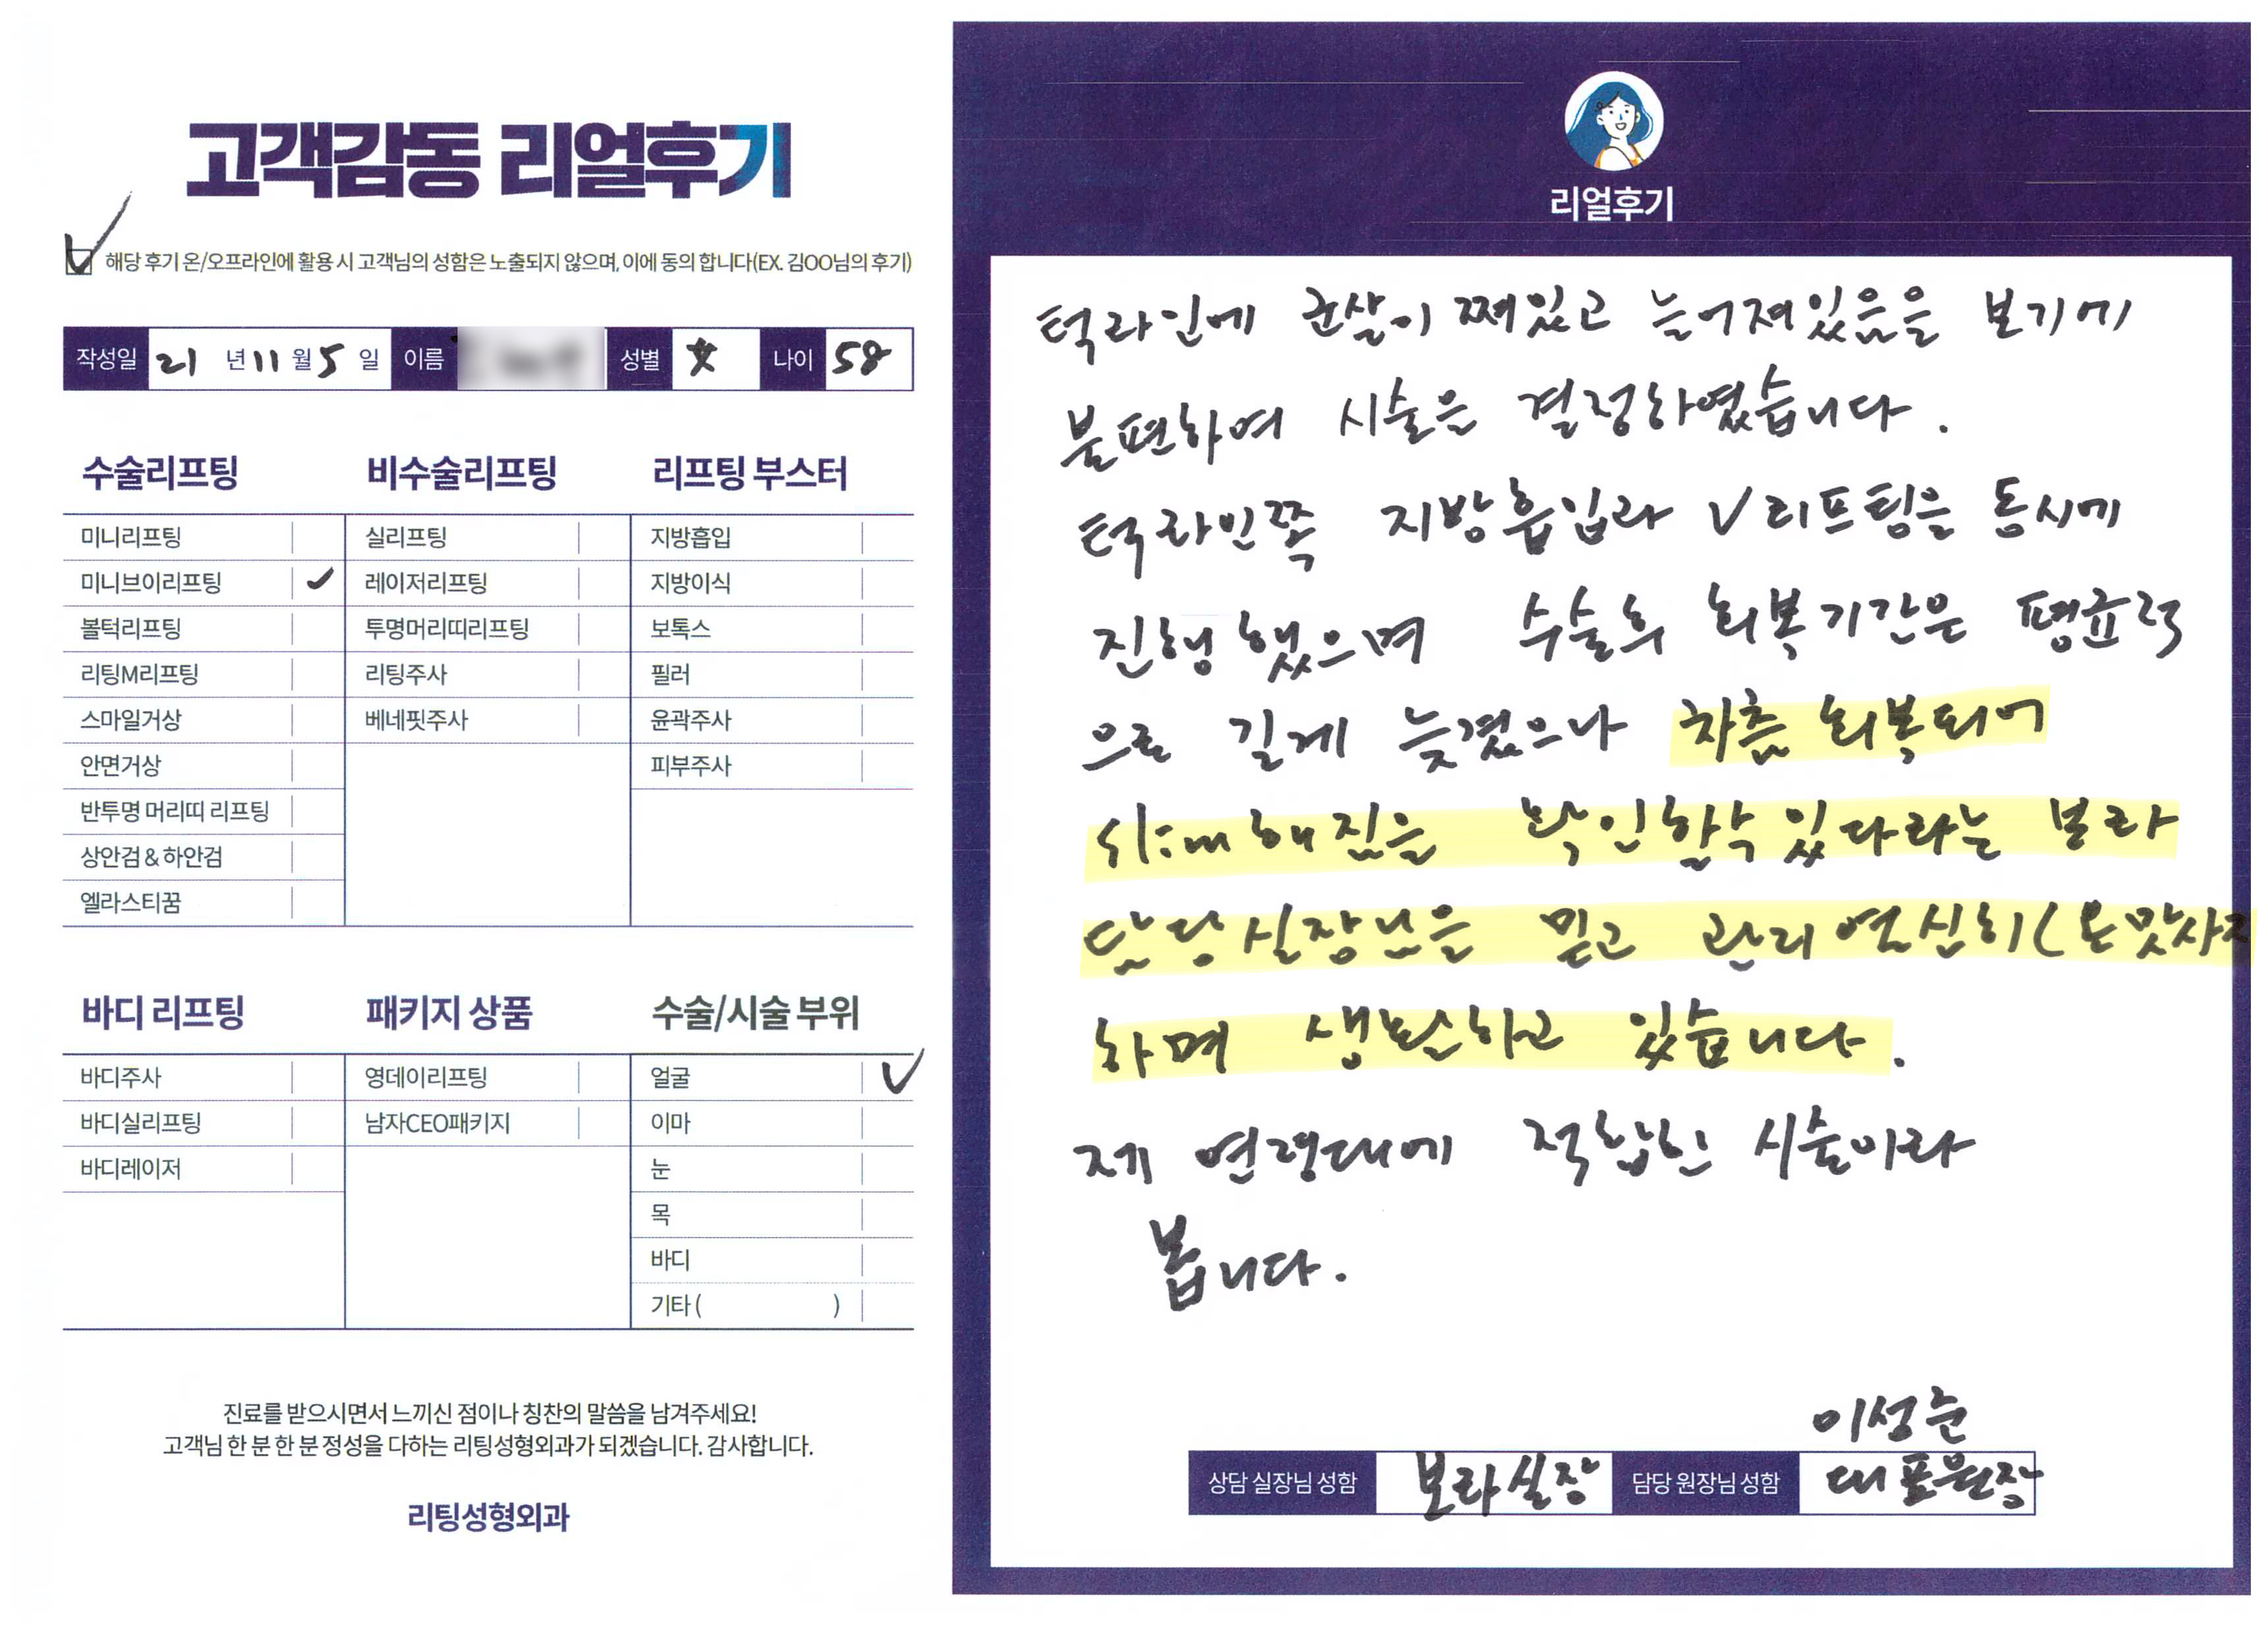 고객감동 리얼후기
해당 후기 온/오프라인에 활용 시 고객님의 성함은 노출되지 않으며, 이에 동의 합니다(EX. 김OO님의 후기)
작성일 21 년 11 월 5 일 이름 성별 女 나이 58
수술리프팅
미니리프팅
미니브이리프팅
볼턱리프팅
리팅M리프팅
스마일거상
안면거상
반투명 머리띠 리프팅
상안검 & 하안검
엘라스티꿈
비수술리프팅
실리프팅
레이저리프팅
투명머리띠리프팅
리팅주사
베네핏주사
리프팅 부스터
지방흡입
지방이식
보톡스
필러
윤곽주사
피부주사
바디 리프팅
바디주사
바디실리프팅
바디레이저
패키지 상품
영데이리프팅
남자CEO패키지
수술/시술 부위
얼굴
이마
눈
목
바디
기타 ( )
진료를 받으시면서 느끼신 점이나 칭찬의 말씀을 남겨주세요!
고객님 한 분 한 분 정성을 다하는 리팅성형외과가 되겠습니다. 감사합니다.
리팅성형외과
리얼후기
턱라인에 군살이 쪄있고 늘어져있음을 보기에
불편하여 시술은 결정하였습니다.
턱라인쪽 지방흡입과 V리프팅을 동시에
진행했으며 수술후 회복기간은 평균적
으로 길게 늦겼으나 차츰 회복되어
해짐을 확인할수있다라는 보라
담당실장님을 믿고 관리열심히(온맛사지
하며 생활하고 있습니다.
제 연령대에 적합한 시술이라
봅니다.
이성준
상담 실장님 성함 보라실장 담당 원장님 성함 대표원장